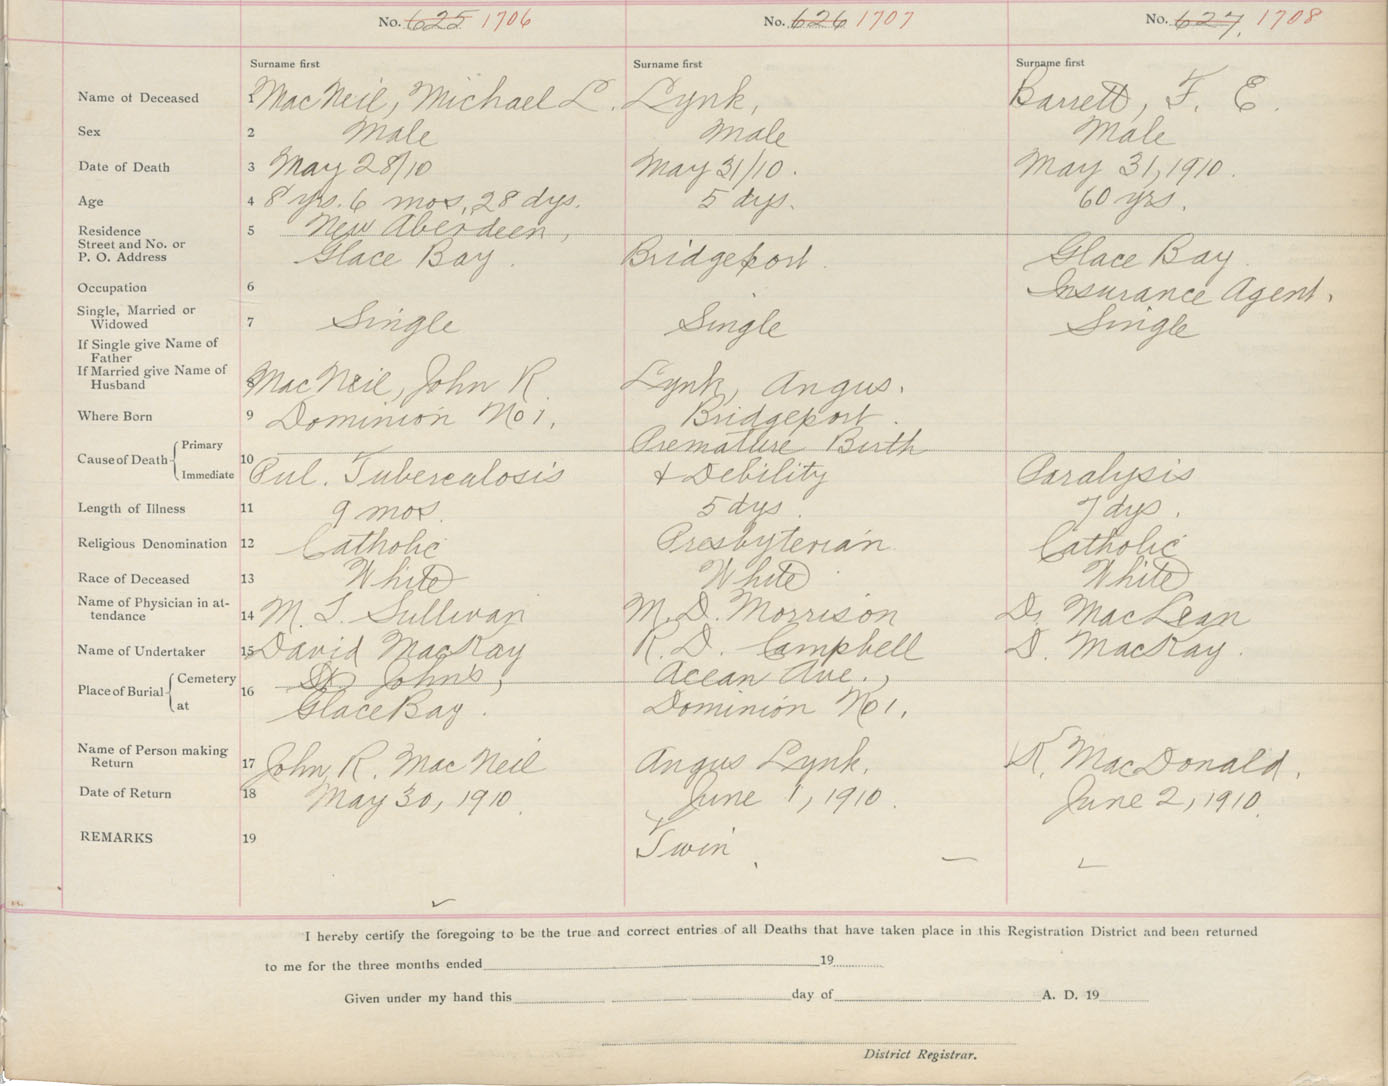 No. 625 1706 No. 626 1707 No. 627. 1708
Surname first Surname first Surname first
Name of Deceased 1 MacNeil, Michael L. Lynk, Barrett, F. E.
Sex 2 Male Male Male
Date of Death 3 May 28/10 May 31/10. May 31, 1910.
Age 4 8 yrs. 6 mos, 28 dys. 5 dys. 60 yrs.
Residence 5 New Aberdeen,
Street and No. or
P. O. Address Glace Bay. Bridgeport. Glace Bay.
Occupation 6 Insurance Agent.
Single, Married or
Widowed 7 Single Single Single
If Single give Name of
Father
If Married give Name of
Husband 8 MacNeil, John R. Lynk, Angus.
Where Born 9 Dominion No 1. Bridgeport.
Cause of Death Primary 10 Premature Birth
Immediate Pul. Tuberculosis + Debility Paralysis
Length of Illness 11 9 mos. 5 dys. 7 dys.
Religious Denomination 12 Catholic Presbyterian Catholic
Race of Deceased 13 White White White
Name of Physician in at-
tendance 14 M. T. Sullivan M. D. Morrison D. MacLean
Name of Undertaker 15 David MacKay R. D. Campbell D. MacKay.
Place of Burial Cemetery 16 St. John's, Ocean Ave.,
at Glace Bay. Dominion No 1.
Name of Person making
Return 17 John R. MacNeil Angus Lynk. R. MacDonald.
Date of Return 18 May 30, 1910. June 1, 1910. June 2, 1910.
REMARKS 19 Twin
I hereby certify the foregoing to be the true and correct entries of all Deaths that have taken place in this Registration District and been returned
to me for the three months ended 19
Given under my hand this day of A. D. 19
District Registrar.